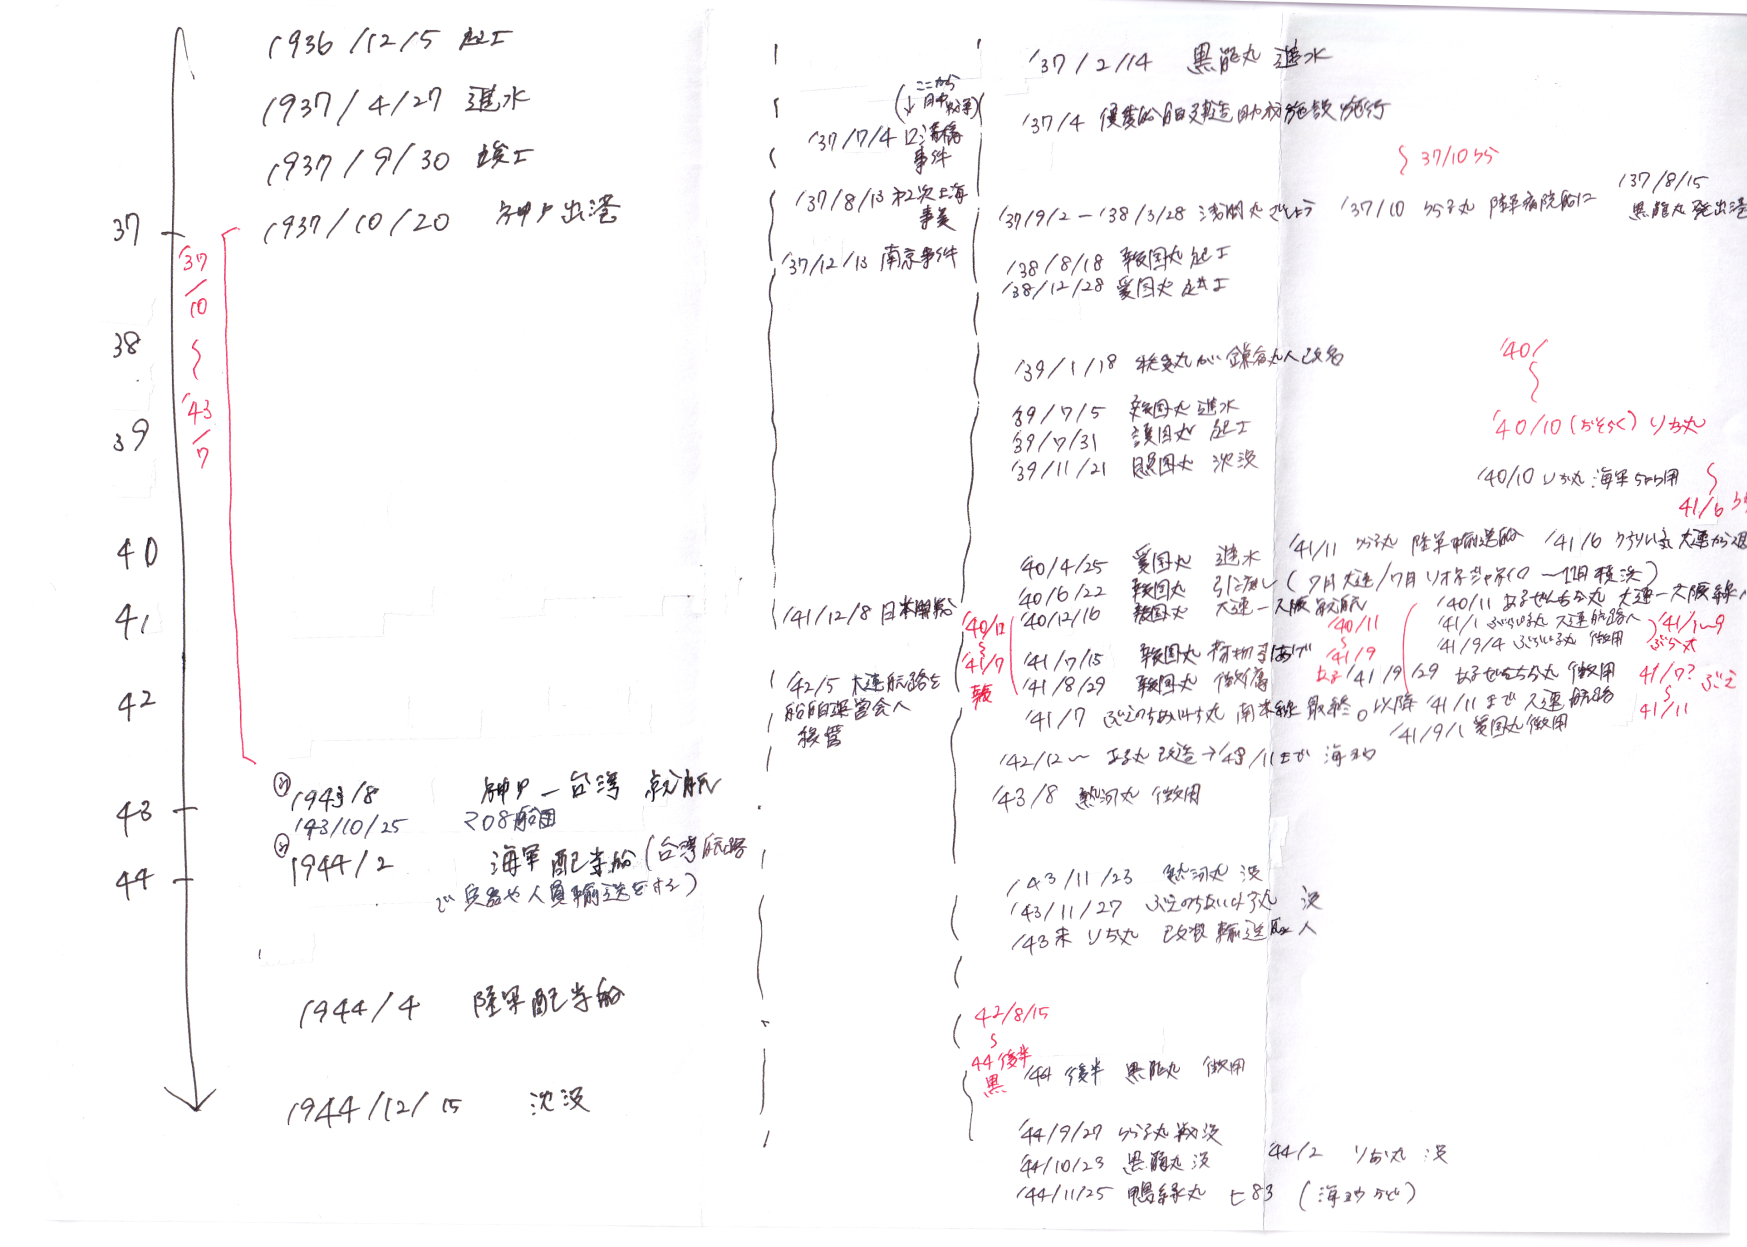 1936/12/5 起工
1937/4/27 進水
1937/9/30 竣工
1937/10/20 神戸出港
37
'37
/
10
〜
'43
/
7
38
39
40
41
42
43
44
1943/8 神戸—台湾 就航
'43/10/25 208船団
1944/2 海軍配当船(台湾航路
で兵器や人員輸送をする)
1944/4 陸軍配当船
1944/12/15 沈没
(ここから
↓日中戦争)
'37/7/4 盧溝橋
事件
'37/8/13 第2次上海
事変
'37/12/13 南京事件
'41/12/8 日米開戦
'42/5 大連航路を
船舶運営会へ
移管
'37/2/14 黒龍丸 進水
'37/4 優秀船舶建造助成施設施行
37/10 うら
'37/9/2—'38/3/28 浅間丸ざしょう
'37/10 うらる丸 陸軍病院船に
'37/8/15
黒龍丸 発出港
'38/8/18 報国丸 起工
'38/12/28 愛国丸 起工
'39/1/18 秩父丸が鎌倉丸へ改名
'40/
〜
39/7/5 報国丸 進水
39/7/31 護国丸 起工
'39/11/21 照国丸 沈没
'40/10(おそらく)りお丸
'40/10 りお丸 海軍ちょう用
〜
41/6
'40/4/25 愛国丸 進水
'41/11 うらる丸 陸軍輸送船
'41/6 うすりい丸 大連から
'40/6/22 報国丸 引き渡し(7月大連/7月リオデジャネイロ〜11月横浜)
'40/12/16 報国丸 大連—大阪就航
'40/11 あるぜんちな丸 大連—大阪線へ
'40/12
〜
'41/7
報
'40/11
〜
'41/9
'41/1 ぶらじる丸 大連航路へ
'41/9/4 ぶらじる丸 徴用
'41/1〜9
ぶら丸
'41/7/15 報国丸 荷物引あげ
'41/8/29 報国丸 徴傭
'41/9/29 あるぜんちな丸 徴用
41/7? ぶえ
〜
41/11
'41/7 ぶえのすあいれす丸 南米線最終。以降'41/11まで大連航路
'41/9/1 愛国丸徴用
'42/12〜 ある丸 改造→'43/11まが 海よう
'43/8 熱河丸 徴用
'43/11/23 熱河丸 没
'43/11/27 ぶえのすあいれす丸 没
'43末 りお丸 改装 輸送
42/8/15
〜
44後半
黒
'44 後半 黒龍丸 徴用
'44/9/27 うらる丸 戦没
'44/10/23 黒龍丸 没
44/2 りお丸 没
'44/11/25 鴨緑丸 ヒ83